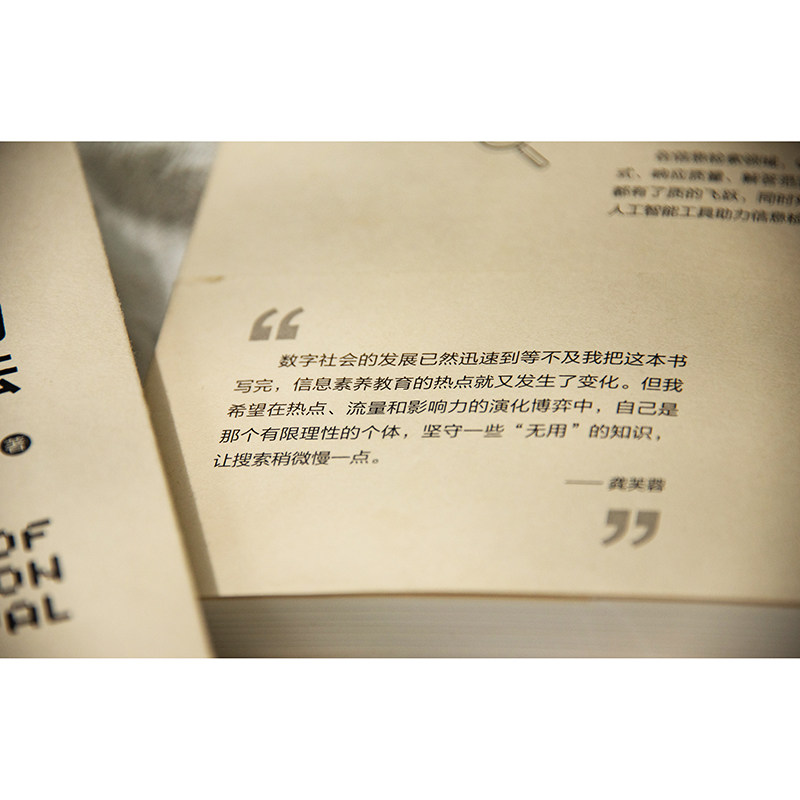 式、响应质量、解答范
都有了质的飞跃，同时
人工智能工具助力信息检
“
数字社会的发展已然迅速到等不及我把这本书
写完，信息素养教育的热点就又发生了变化。但我
希望在热点、流量和影响力的演化博弈中，自己是
那个有限理性的个体，坚守一些“无用”的知识，
让搜索稍微慢一点。
—— 龚芙蓉
”
著
OF
ON
AL